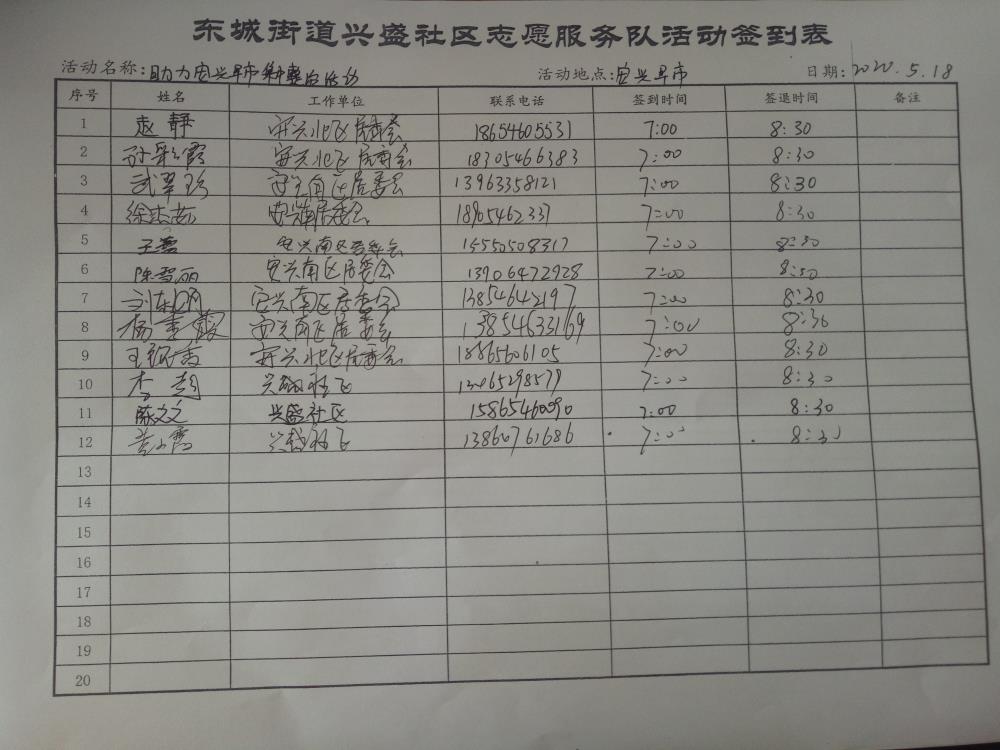 东城街道兴盛社区志愿服务队活动签到表
活动名称:助力安兴早市集中整治活动 活动地点:安兴早市 日期:2020.5.18
序号 姓名 工作单位 联系电话 签到时间 签退时间 备注
1 赵静 安兴北区居委会 18654605531 7:00 8:30
2 孙彩霞 安兴北区居委会 18305466383 7:00 8:30
3 武翠珍 安兴南区居委会 13963358121 7:00 8:30
4 徐志茹 安兴南居委会 18905462337 7:00 8:30
5 王 安兴南区居委会 15550508317 7:00 8:30
6 陈 丽 安兴南区居委会 13906472928 7:00 8:30
7 刘东 安兴南区居委会 13854642197 7:00 8:30
8 杨 霞 安兴南区居委会 13854633169 7:00 8:30
9 王 安兴北区居委会 18865606105 7:00 8:30
10 李超 兴盛社区 7:00 8:30
11 陈文文 兴盛社区 15865460090 7:00 8:30
12 黄小霞 兴盛社区 13860761686 7:00 8:30
13
14
15
16
17
18
19
20